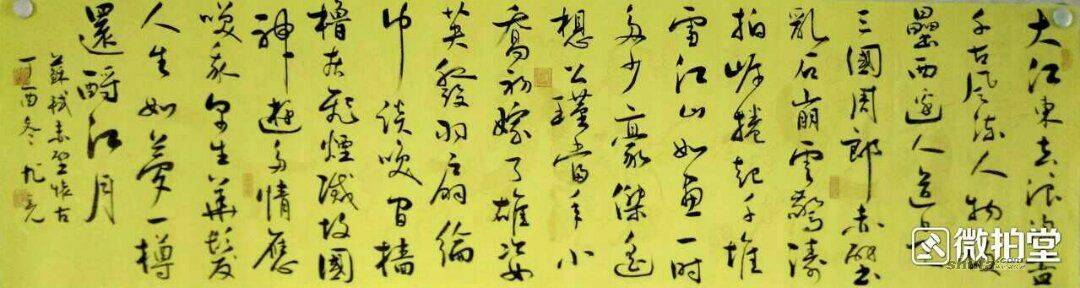 大江東去浪淘盡
千古風流人物故
壘西邊人道是
三國周郎赤壁
亂石崩雲驚濤
拍岸捲起千堆
雪江山如畫一時
多少豪傑遙
想公瑾當年小
喬初嫁了雄姿
英發羽扇綸
巾談笑間檣
櫓灰飛煙滅故國
神遊多情應
笑我早生華髮
人生如夢一樽
還酹江月
蘇軾赤壁懷古
丁酉冬
微拍堂